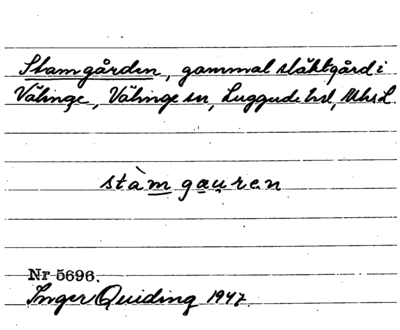 Stamgården, gammal släktgård i
Välinge, Välinge sn, Luggude hd, Mhs L.
stàm gau̯ren
Nr 5696.
Inger Quiding 1947.